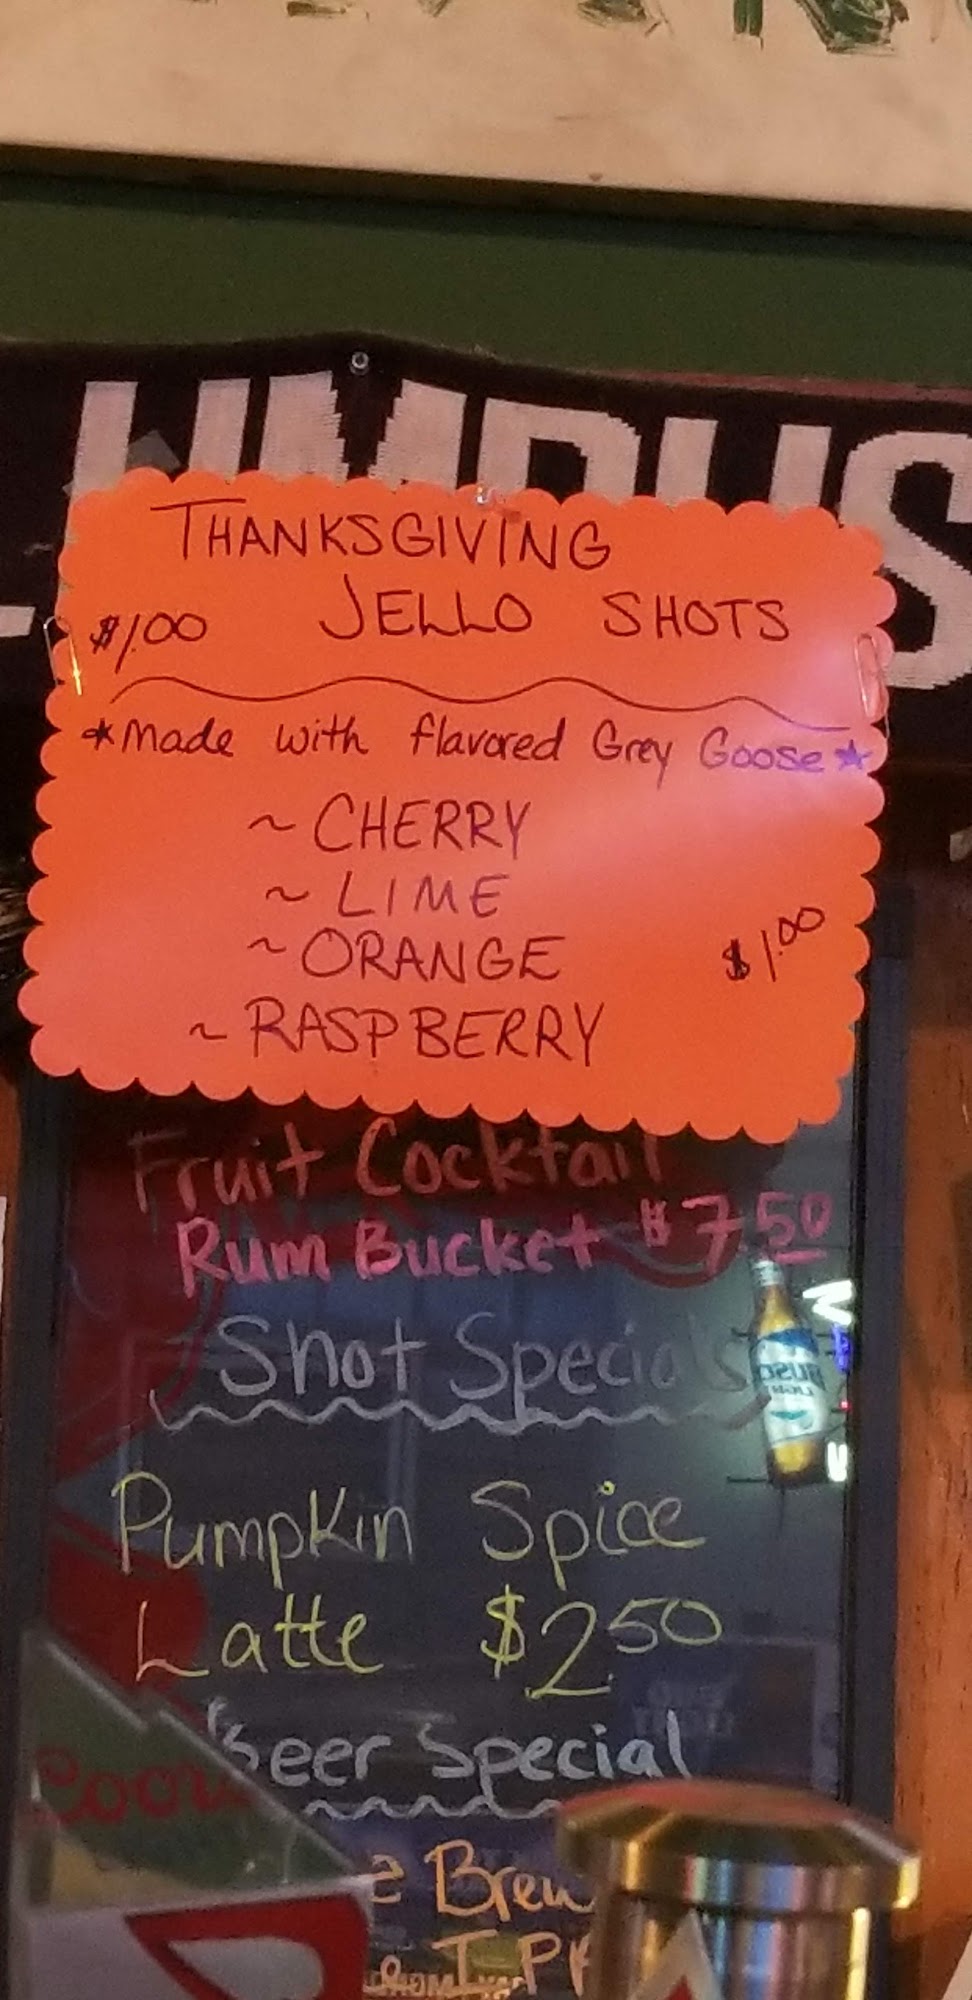 THANKSGIVING
$1.00 JELLO SHOTS
*Made with flavored Grey Goose*
~ CHERRY
~ LIME
~ ORANGE
$1.00
~ RASPBERRY
Fruit Cocktail
Rum Bucket $7.50
Shot Specials
Pumpkin Spice
Latte $2.50
Beer Special
Brew
IPA
BUSCH
LIGHT
Coors